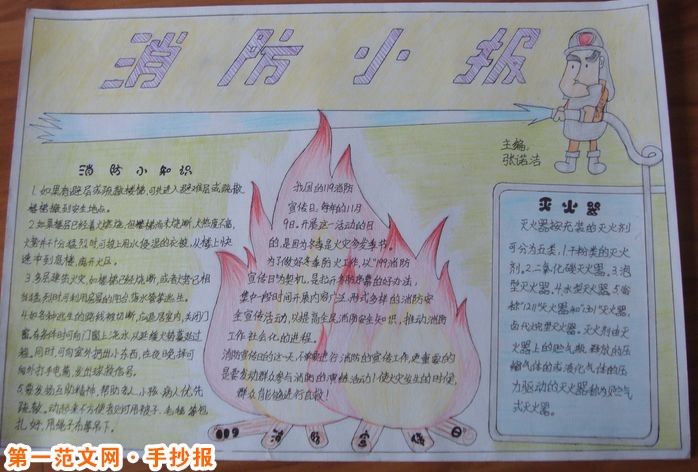 消防小报
主编:
张诺洁
消防小知识
1.如果有避层或疏散楼梯,可先进入避难层或疏散
楼梯撤到安全地点。
2.如果楼层已经着火燃烧,但楼梯尚未烧断,火势
火势并不十分猛烈时可披上用水浸湿的衣被,从楼上快
速冲到底楼,离开火区。
3.多层建筑火灾,如楼梯已经烧断,或者火势已相
当猛烈时可利用房屋的阳台落水管等逃生。
4.如各种逃生的路线被切断,应退居室内,关闭门
窗,有条件时可向门窗上浇水,以延缓火势蔓延过
程。同时,可向室外扔出小东西,在夜晚,择可
向外打手电筒,发出求救信号。
5.要发扬互助精神,帮助老人、小孩、病人优先
疏散。动作不方便者可用被子、毛毯等包
扎好,用绳子布等吊下。
我国的119消防
宣传日,每年的11月
9日。开展这一活动的目
的,是因为冬季是火灾多发季节。
为了做好冬季防火工作,以“119消防
宣传日”为契机,是拉开冬防序幕的好办法,
集中一段时间开展内容广泛、形式多样的消防安
全宣传活动,以提高全民消防安全知识,推动消防
工作社会化的进程。
消防宣传日的这一天,不单要进行消防的宣传工作,更重要的
是要发动群众参与消防的演练活动!使火灾发生的时候,
群众能够进行自救!
119消防宣传日
灭火器
灭火器按充装的灭火剂
可分为五类,1.干粉类的灭火
剂。2.二氧化碳灭火器。3.泡
沫型灭火器。4.水型灭火器。5.俗
称“1211”灭火器和“1301”灭火器,
卤代烷型灭火器。灭火剂由灭
火器上的贮气瓶释放的压
缩气体的或液化气体的压
力驱动的灭火器称为贮气
式灭火器。
第一范文网·手抄报